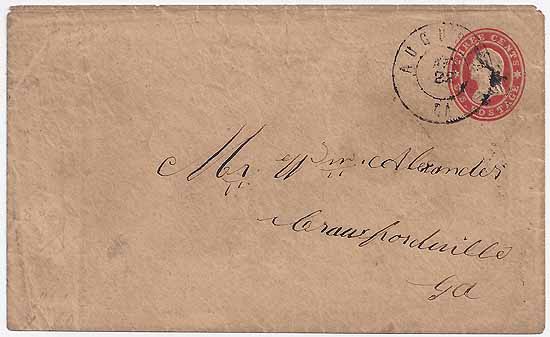 THREE CENTS
U.S. POSTAGE
AUGUSTA
22
GA
Mr. Wm. Alexander
Crawfordville
Ga